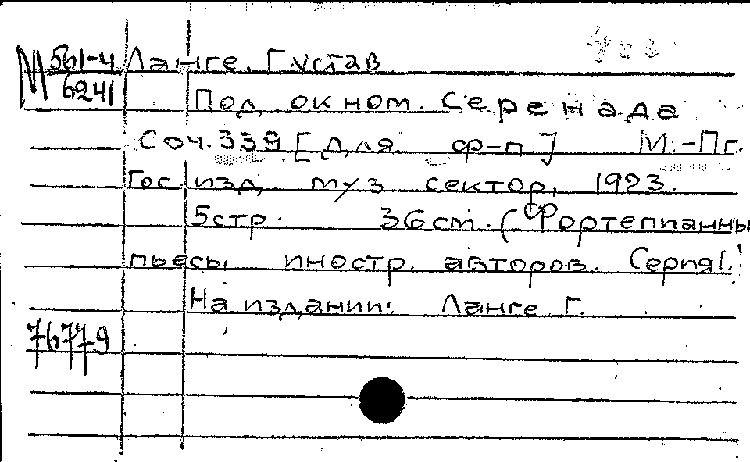 М 561-4 Ланге, Густав.
6241 Под окном. Серенада
Соч. 339 [для ф-п] М.-Пг.
Гос. изд. муз сектор, 1923.
5стр. 36cm. (Фортепианны
пьесы иностр. авторов.
На издании: Ланге Г.
76779